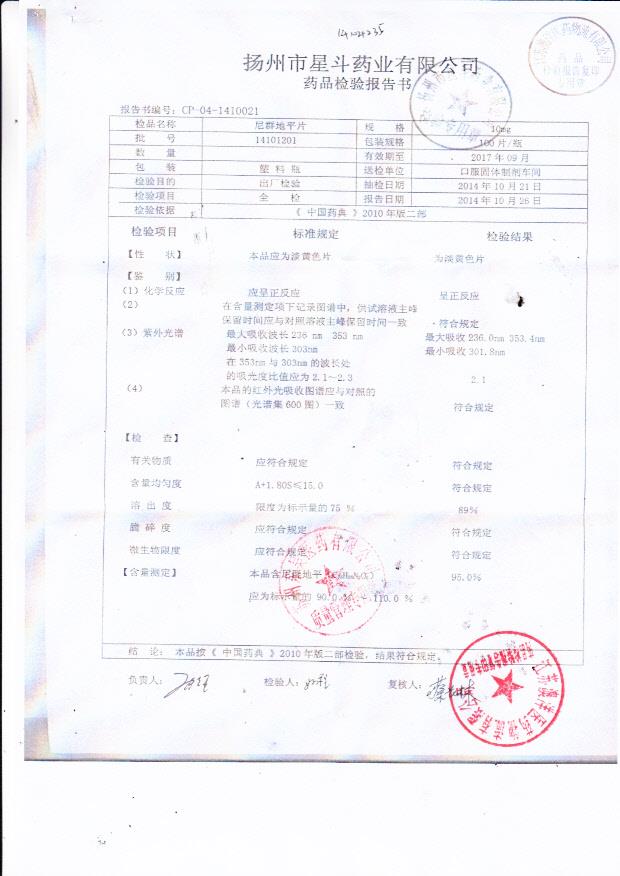 扬州市星斗药业有限公司
药品检验报告书
药品
检验报告复印
专用章
报告书编号: CP-04-1410021
检品名称 尼群地平片 规 格 10mg
批 号 14101201 包装规格 100片/瓶
数 量 有效期至 2017年09月
包 装 塑料瓶 送检单位 口服固体制剂车间
检验目的 出厂检验 抽检日期 2014年10月21日
检验项目 全 检 报告日期 2014年10月26日
检验依据 《中国药典》2010年版二部
检验项目 标准规定 检验结果
【性 状】 本品应为淡黄色片 为淡黄色片
【鉴 别】
(1)化学反应 应呈正反应 呈正反应
(2) 在含量测定项下记录图谱中,供试溶液主峰
保留时间应与对照溶液主峰保留时间一致 符合规定
(3)紫外光谱 最大吸收波长236 nm 353 nm 最大吸收236.0nm 353.4nm
最小吸收波长303nm 最小吸收301.8nm
在353nm与303nm的波长处
的吸光度比值应为2.1~2.3 2.1
(4) 本品的红外光吸收图谱应与对照的
图谱(光谱集600图)一致 符合规定
【检 查】
有关物质 应符合规定 符合规定
含量均匀度 A+1.80S≤15.0 符合规定
溶出度 限度为标示量的75 % 89%
脆碎度 应符合规定 符合规定
微生物限度 应符合规定 符合规定
【含量测定】 本品含尼群地平 95.0%
应为标示量的 90.0 % ~110.0 %
结 论: 本品按《中国药典》2010年版二部检验,结果符合规定。
负责人: 检验人: 复核人: